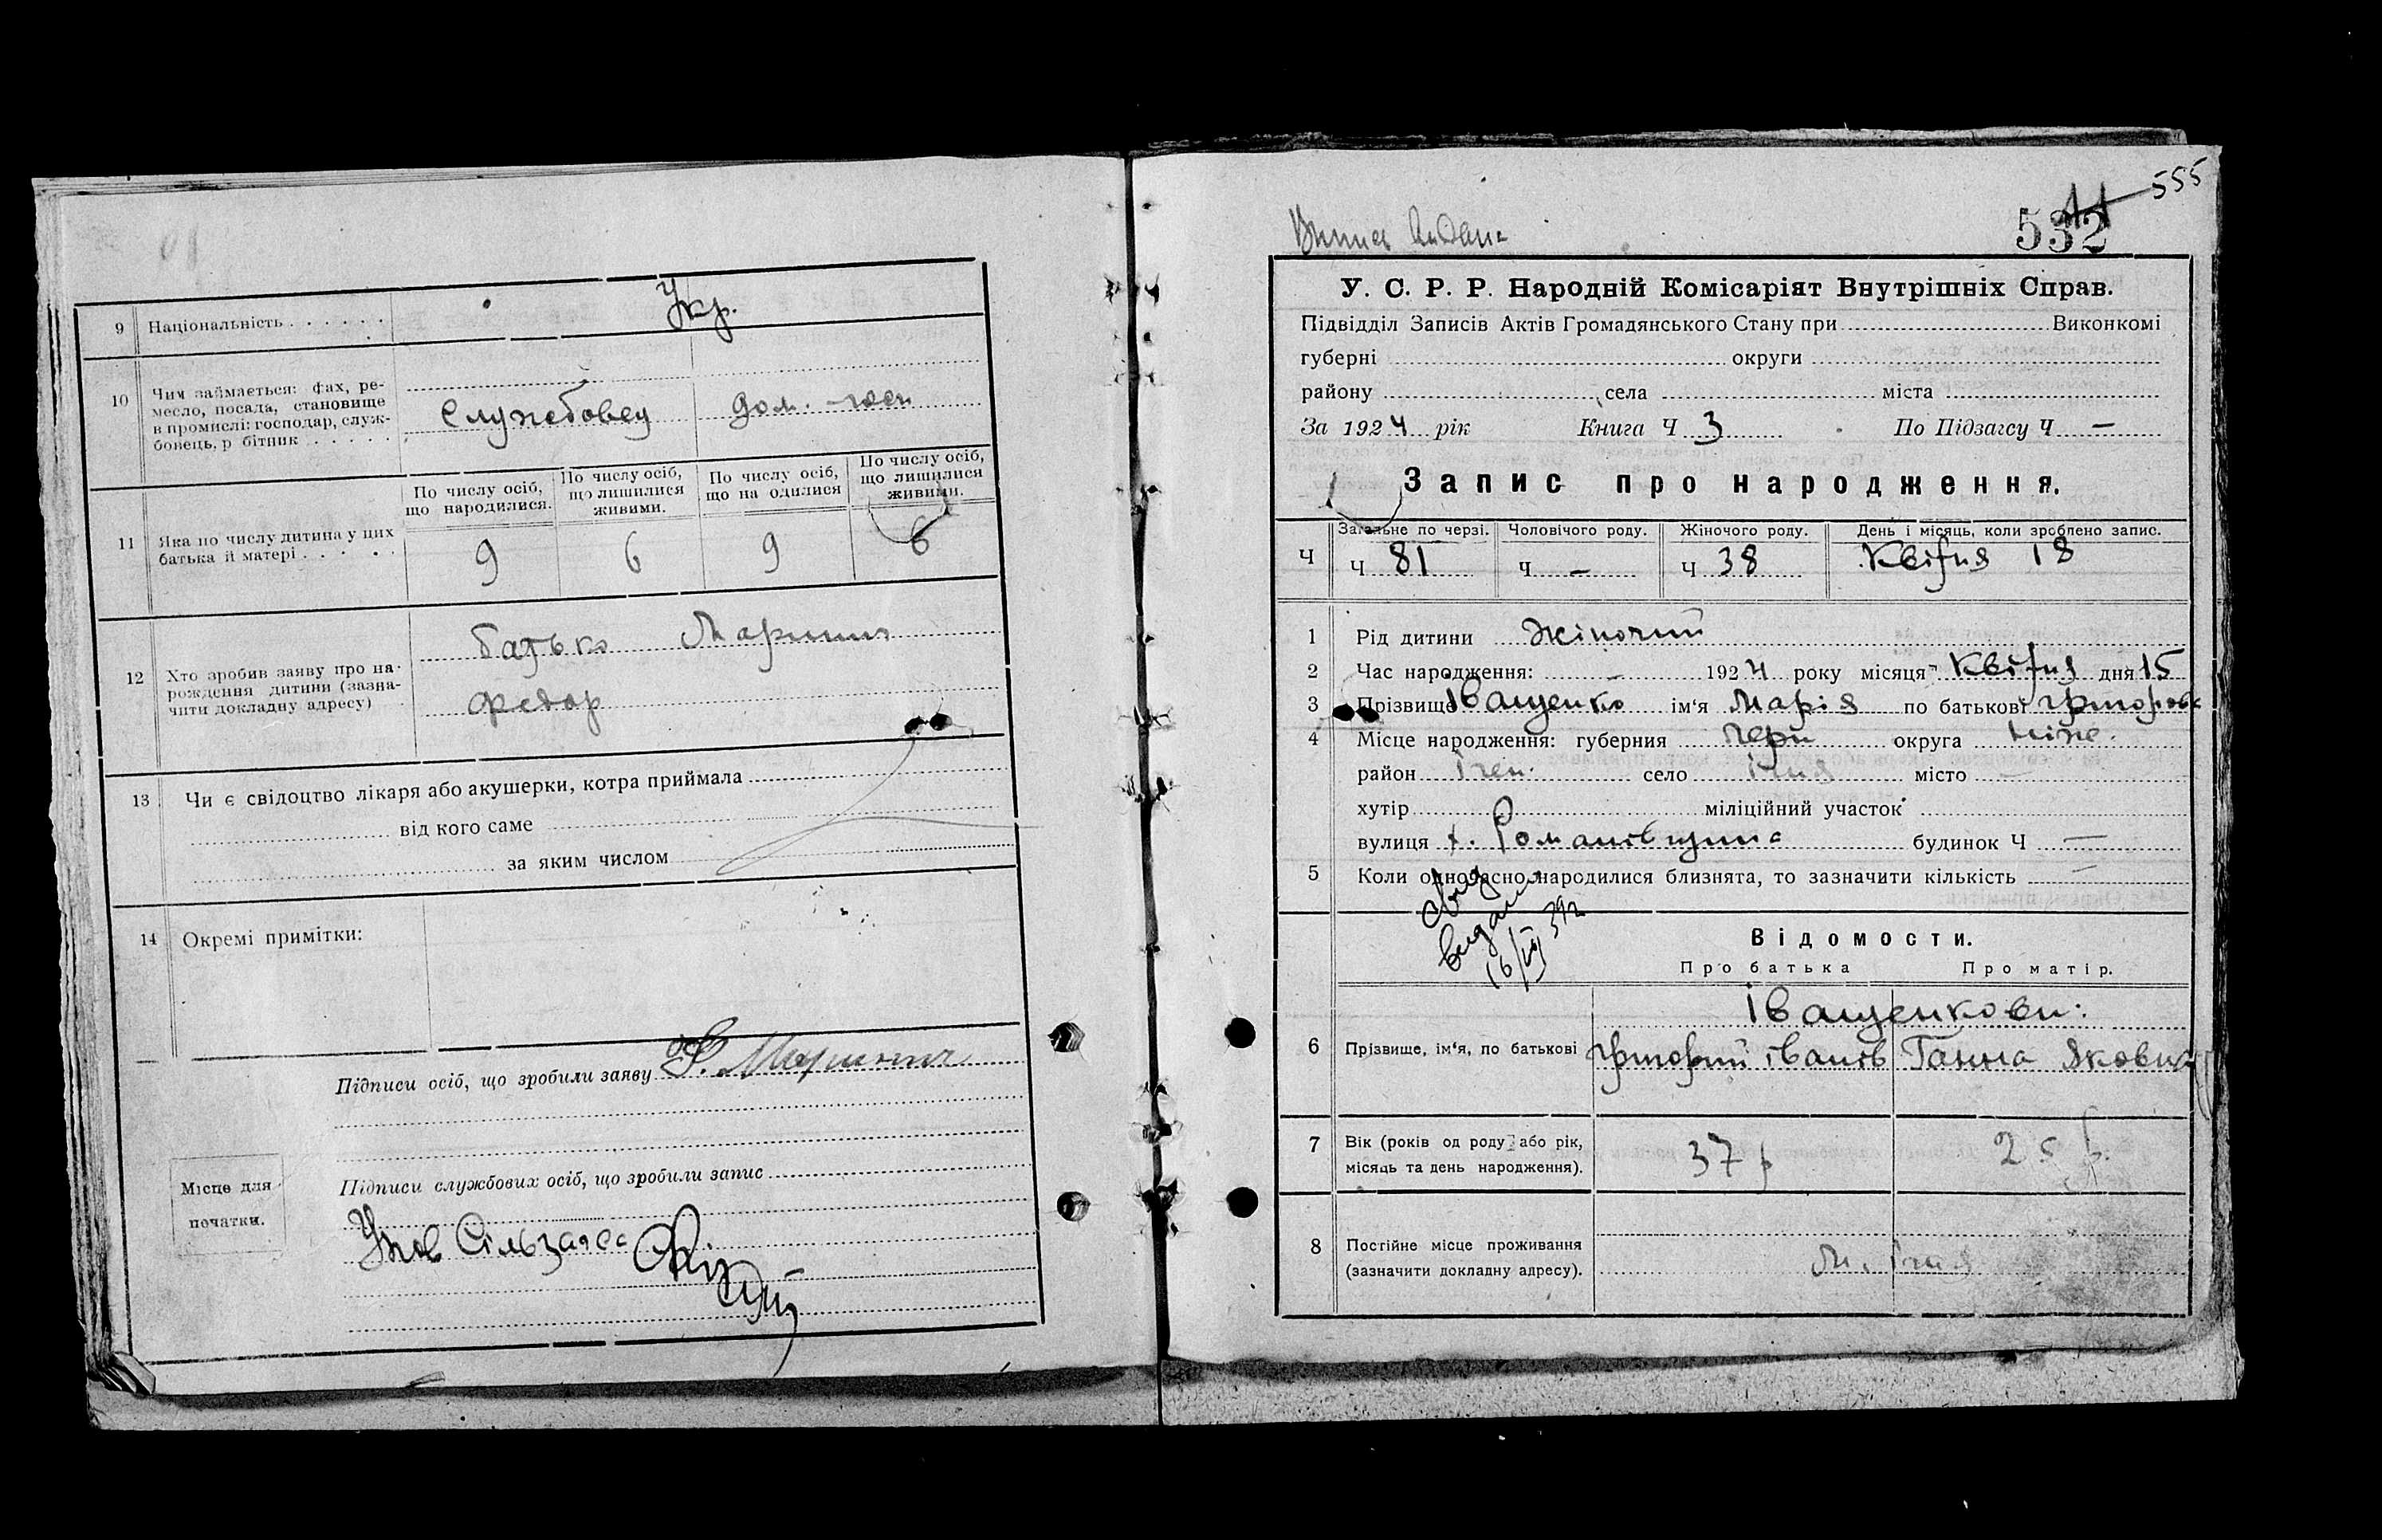 9 Національність . . . . . . Укр.
10 Чим займається: фах, ре-
месло, посада, становище
в промислі: господар, служ-
бовець, р бітник . . . . .
Службовец дом. -госп
11 Яка по числу дитина у цих
батька й матері . . . . .
По числу осіб,
що народилися.
По числу осіб,
що лишилися
живими.
По числу осіб,
що на одилися
По числу осіб,
що лишилися
живими.
9 6 9 6
12 Хто зробив заяву про на-
рождення дитини (зазна-
чити докладну адресу)
батько Маринич
Федор
13 Чи є свідоцтво лікаря або акушерки, котра приймала
від кого саме
за яким числом
14 Окремі примітки:
Підписи осіб, що зробили заяву Ф. Маринич
Підписи службових осіб, що зробили запис
Місце для
початки.
Упов Сільзагса
555
532
У. С. Р. Р. Народній Комісаріят Внутрішніх Справ.
Підвідділ Записів Актів Громадянського Стану при Виконкомі
губерні округи
району села міста
За 1924 рік Книга Ч 3 По Підзагсу Ч —
Запис про народження.
Загальне по черзі. Чоловічого роду. Жіночого роду. День і місяць, коли зроблено запис.
Ч Ч 81 Ч — Ч 38 Квітня 18
1 Рід дитини жіночий
2 Час народження: — 1924 року місяця Квітня дня 15
3 Прізвище Іващенко ім'я Марія по батькові Григоровн
4 Місце народження: губерния Черн округа Ніже.
район Ічен. село Ічня місто —
хутір міліційний участок
вулиця х. Романівщина будинок Ч —
5 Коли одночасно народилися близнята, то зазначити кількість —
видано
16/VII 39г
Відомости.
Про батька Про матір.
Іващенкови:
6 Прізвище, ім'я, по батькові Григорий Іванів Ганна Яковна
7 Вік (років од роду або рік,
місяць та день народження).
37 р 25 р.
8 Постійне місце проживання
(зазначити докладну адресу).
м. Ічня